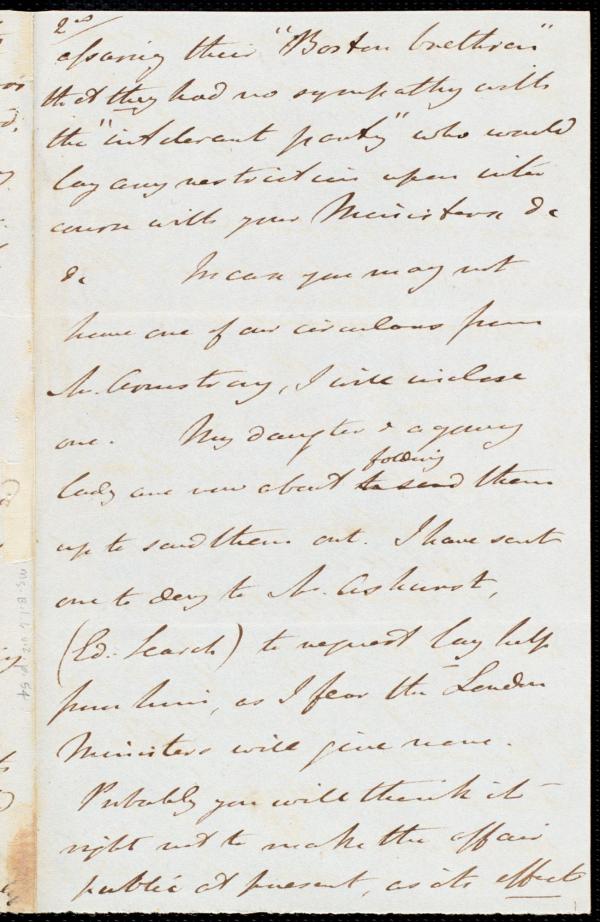 2nd
assuring their "Boston brethren"
that they had no sympathy with
the "intolerant party" who would
lay any restrictions upon inter
course with your Ministers &c
&c In case you may not
have one of our circulars from
Mr. Armstrong, I will inclose
one. My daughter & a young
lady are now about folding to send them
up to send them out. I have sent
one to day to Mr. Ashurst,
(Ed. Search) to request lay help
from him, as I fear the London
Ministers will give none.
Probably you will think it
right not to make the affair
public at present, as its effects
Ms. B.1.6 v.2 p.54